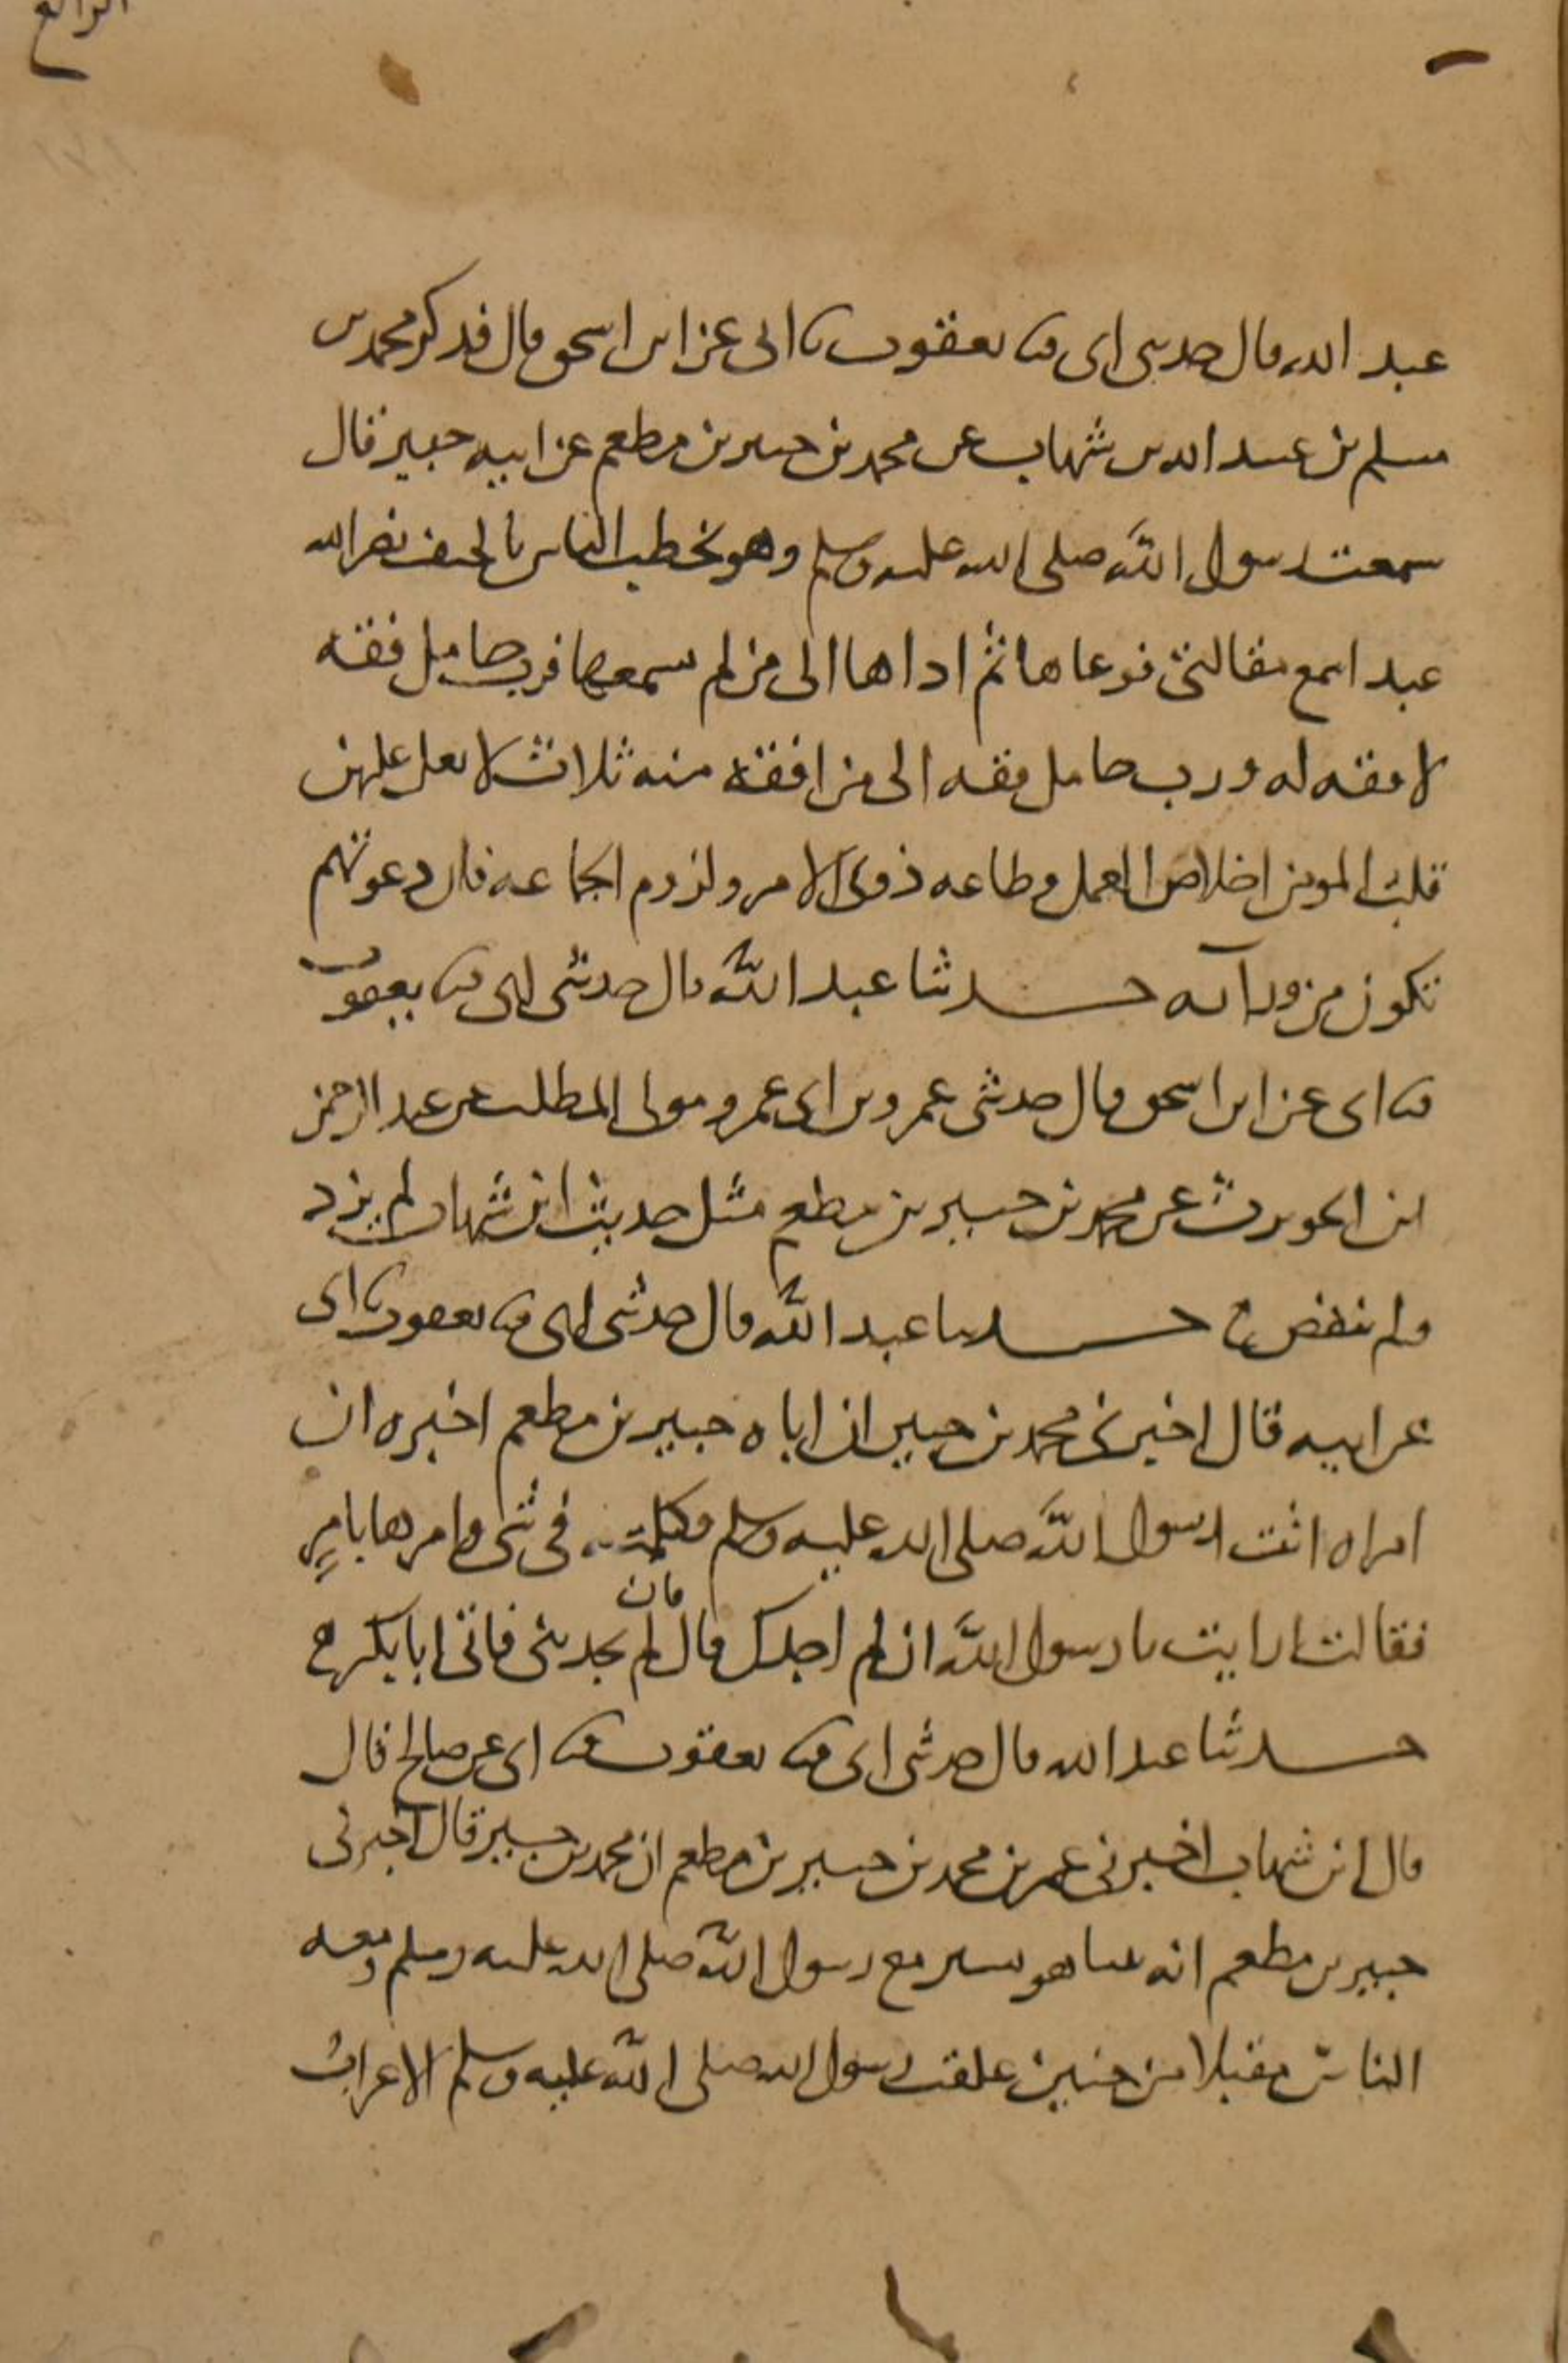 الرابع
عبد الله قال حدثني ابي ثنا يعقوب ثنا ابي عن ابن اسحق قال فذكر محمد بن
مسلم بن عبيد الله بن شهاب عن محمد بن جبير بن مطعم عن ابيه جبير قال
سمعت رسول الله صلى الله عليه وسلم وهو يخطب الناس بالخيف نضر الله
عبدا سمع مقالتي فوعاها ثم اداها الى من لم يسمعها فرب حامل فقه
لا فقه له ورب حامل فقه الى من افقه منه ثلاث لا يغل عليهن
قلب المومن اخلاص العمل وطاعه ذوي الامر ولزوم الجماعه فان دعوتهم
تكون من ورآئه حدثنا عبد الله قال حدثني ابي ثنا يعقوب
ثنا ابي عن ابن اسحق قال حدثني عمرو بن ابي عمرو مولى المطلب عن عبد الرحمن
ابن الحويرث عن محمد بن جبير بن مطعم مثل حديث ابن شهاب لم يزد
ولم ينقص ح حدثنا عبد الله قال حدثني ابي ثنا يعقوب ثنا ابي
عن ابيه قال اخبرني محمد بن جبير ان اباه جبير بن مطعم اخبره ان
امراه اتت رسول الله صلى الله عليه وسلم فكلمته في شي فامرها بامر
فقالت ارايت يا رسول الله ان لم اجدك قال فان لم تجديني فاتي ابا بكر ح
حدثنا عبد الله قال حدثني ابي ثنا يعقوب ثنا ابي عن صالح قال
قال ابن شهاب اخبرني عمر بن محمد بن جبير بن مطعم ان محمد بن جبير قال اخبرني
جبير بن مطعم انه بينا هو يسير مع رسول الله صلى الله عليه وسلم ومعه
الناس مقبلا من حنين علقت رسول الله صلى الله عليه وسلم الاعراب